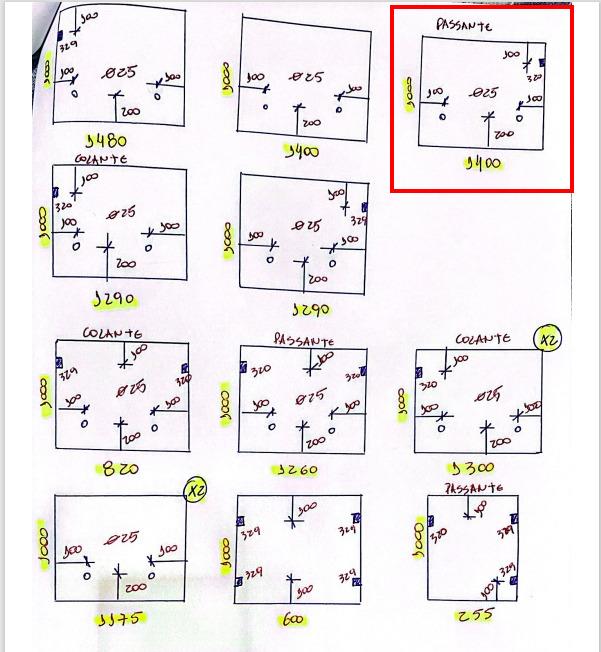 100
329
1000
100
Ø25
100
0
0
200
1480
1000
100
Ø25
100
0
0
200
1400
PASSANTE
100
320
1000
100
Ø25
100
0
0
200
1400
COLANTE
100
320
1000
100
Ø25
100
0
0
200
1290
100
329
1000
100
Ø25
100
0
0
200
1290
COLANTE
100
329
320
1000
Ø25
100
100
0
0
200
820
PASSANTE
100
320
320
1000
Ø25
100
100
0
0
200
1260
COLANTE
X2
100
320
1000
Ø25
100
100
0
0
200
1300
X2
1000
Ø25
100
100
0
0
200
1175
329
100
329
1000
329
329
100
600
PASSANTE
100
320
329
1000
329
100
255